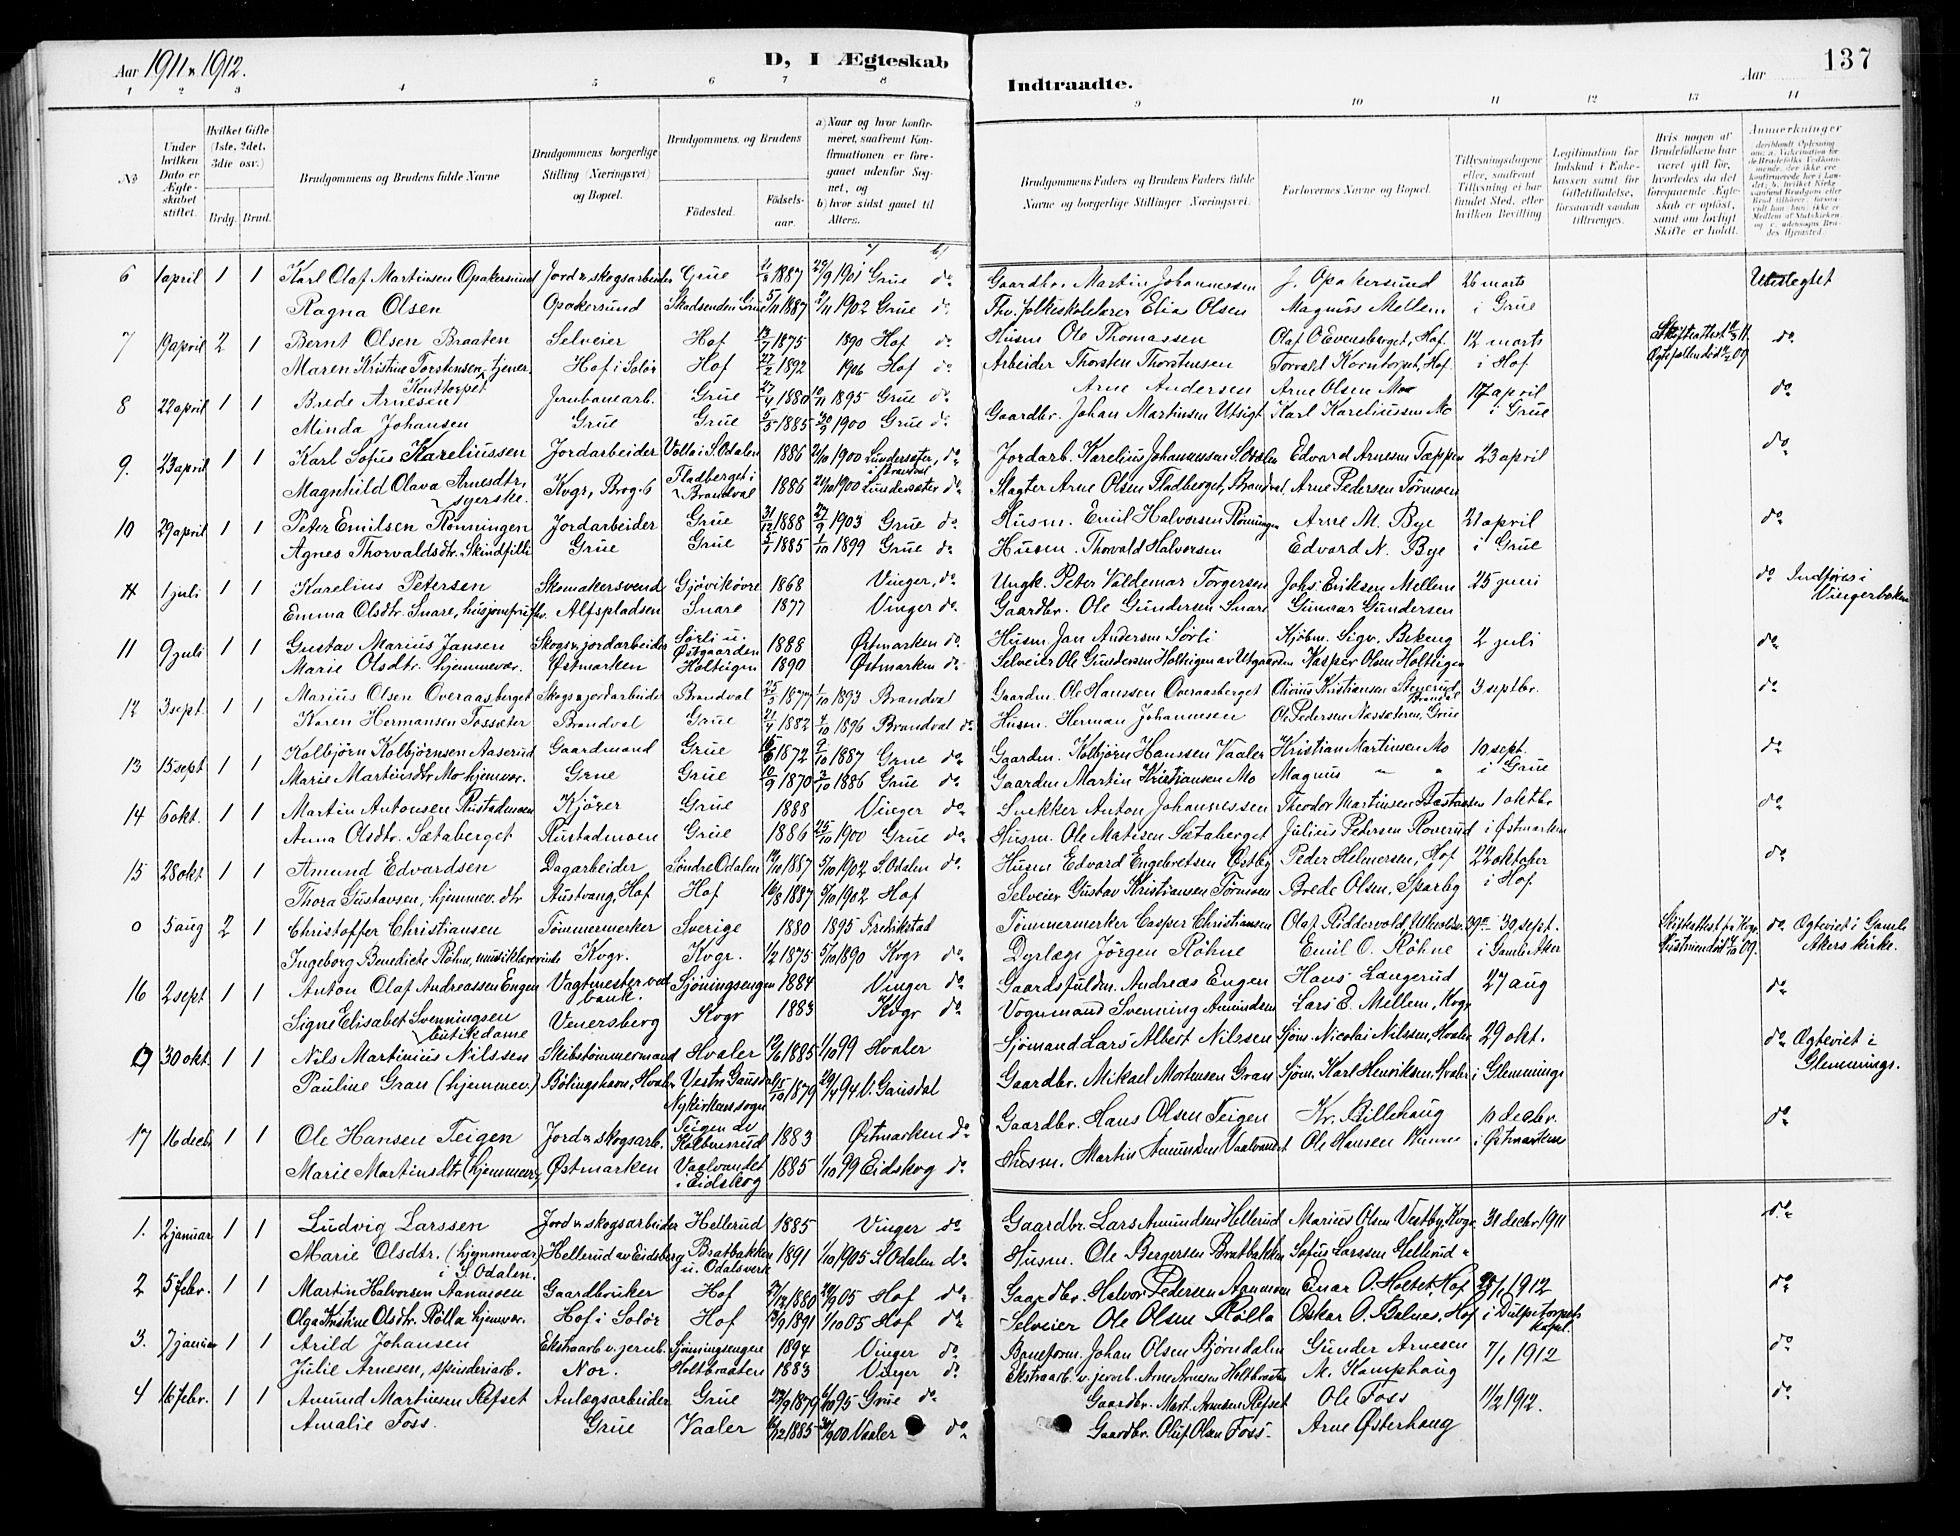 Aar 1911 & 1912. D, I Ægteskab
Indtraadte. Aar 137
1 2 3 4 5 6 7 8 9 10 11 12 13 14
No Under hvilken Dato er Ægteskabet stiftet. Hvilket Gifte (1ste, 2det, 3die osv.) Brdg. Brud. Brudgommens og Brudens fulde Navne Brudgommens borgerlige Stilling (Næringsvei) og Bopæl. Brudgommens og Brudens Fødested. Fødselsaar. a) Naar og hvor konfirmeret, saafremt Konfirmationen er foregaaet udenfor Sognet, og b) hvor sidst gaaet til Alters.
Brudgommens Faders og Brudens Faders fulde Navne og borgerlige Stillinger Næringsvei. Forlovernes Navne og Bopæl. Tillysningsdagene eller, saafremt Tillysning ei har fundet Sted, efter hvilken Bevilling Legitimation for Indskud i Enkekassen samt for Giftetilladelse, forsaavidt saadan tiltrænges. Hvis nogen af Brudefolkene har været gift før, hvorledes da det foregaaende Ægteskab er opløst, samt om lovligt Skifte er holdt. Anmerkninger
a) b)
6 1 april 1 1 Karl Olaf Martinsen Opakersund Jord & skogsarbeider Grue 1887 27/9 1901 Grue do Gaardbr. Martin Johannessen J. Opakersund 26 marts Ubeslegtet
Ragna Olsen Opakersund Skadsenden Grue 5/11 1887 1902 Grue do Fhv. folkeskolelærer Elia Olsen Magnus Mellem i Grue
7 19 april 2 1 Bernt Olsen Braaten Selveier Hof 1875 1890 Hof do Husm Ole Thomassen Olaf O Evensberget, Hof. 12 marts do
Maren Kristine Torstensen, tjener Hof i Solør Hof 27/2 1892 1906 Hof do Arbeider Thorsten Thorstensen Torvald Korntorpet, Hof i Hof
Konttorpet
8 22 april 1 1 Brede Arnesen Jernbanearb. Grue 27/4 1880 1895 Grue do Arne Andersen Arne Olsen Mo 17 april do
Minda Johansen Grue Grue 5/5 1885 30/9 1900 Grue do Gaardbr. Johan Martinsen Utsigt Karl Kareliussen Mo i Grue
9. 23 april 1 1 Karl Sofus Kareliussen Jordarbeider Volla i S. Odalen 1886 21/10 1900 Lundersæter, do Jordarb. Karelius Johannessen S. Odalen Edvard Arnesen Tæppen 23 april do
i Brandval
Magnhild Olava Arnesdtr, Kvgr, Brog. 6 Fladberget i 1886 21/10 1900 Lundersæter do Slagter Arne Olsen Fladberget, Brandval Arne Pedersen Tørmoen
syerske. Brandval
10 29 april 1 1 Peter Emilsen Rønningen Jordarbeider Grue 31/12 1888 27/9 1903 Grue do Husm. Emil Halvorsen Rønningen Arne M. Bye 21 april do
Agnes Thorvaldsdtr. Skindfilli Grue Grue 5/1 1885 1/10 1899 Grue do Husm. Thorvald Halvorsen Edvard N. Bye i Grue
1 juli 1 1 Karelius Petersen Skomakersvend Gjøvik øvre 1868 Vinger, do Ungk. Peter Valdemar Torgersen Johs. Eriksen Mellem 25 juni do Indføres i
Vingerboken
Emma Olsdtr. Snare, husjomfru Alfspladsen Snare 1877 Vinger do Gaardbr. Ole Gundersen Snare Gunnar Gundersen
11 9 juli 1 1 Gustav Marius Jansen Skogs & jordarbeider Sørli u. 1888 Østmarken do Husm Jan Andersen Sørli Kjøbm. Sigv. Bekeng 2 juli do
Østgaarden
Marie Olsdtr. hjemmevær. Østmarken Holteigen 1890 Østmarken do Selveier Ole Gundersen Holteigen av Utgaarden Kasper Olsen Holteigen
12 3 sept 1 1 Marius Olsen Overaasberget Skogs & jordarbeider Brandval 25/3 1877 1/10 1893 Brandval Gaardm. Ole Hanssen Overaasberget Olivius Kristiansen Stenerud 3 septbr. do
Brandval
Karen Hermansen Fossæter Brandval Grue 21/4 1882 4/10 1896 Brandval do Husm. Herman Johannesen Ole Pedersen Næssæteren, Grue
13 15 sept 1 1 Kolbjørn Kolbjørnsen Aaserud Gaardmand Grue 1872 2/10 1887 Grue do Gaardm. Kolbjørn Hanssen Vaaler Kristian Martinsen Mo 10 sept. do
Marie Martinsdtr Mo hjemvær. Grue Grue 10/9 1870 3/10 1886 Grue do Gaardm Martin Kristiansen Mo Magnus " " i Grue
14 6 okt. 1 1 Martin Antonsen Rustadmoen Kjører Grue 1888 Vinger do Snekker Anton Johannessen Theodor Martinsen Bastaasen 1 oktbr do
Anna Olsdtr. Sætaberget Rustadmoen Grue 1886 25/10 1900 Grue do Husm. Ole Matisen Sætaberget Julius Pedersen Roverud i Østmarken
15 28 okt 1 1 Amund Edvardsen Dagarbeider Søndre Odalen 14/11 1887 5/10 1902 S. Odalen do Husm Edvard Engebretsen Østby Peder Helmersen, Hof 22 oktober do
Thora Gustavsen, hjemmev. dtr Austvang, Hof Hof 16/8 1887 5/10 1902 Hof Selveier Gustav Kristiansen Tørmoen Brede Olsen, Sparby i Hof.
0 5 aug 2 1 Christoffer Christiansen Tømmermerker Sverige 1880 1895 Fredrikstad Tømmermerker Casper Christiansen Olaf Riddervold 30 sept. Skifteattest fra Kvgr. do Ogteviet i Gamle
Akers kirke.
Ingeborg Benedicte Røhne, musiklærerinde Kvgr. Kvgr. 1/2 1875 5/10 1890 Kvgr do Dyrlæge Jørgen Røhne Emil O. Røhne i Gamle Aker
16 2 sept 1 1 Anton Olaf Andreassen Engen Vagtmester ved Sjøningsengen 1884 Vinger do Gaardsfuldm. Andreas Engen Hans Langerud 27 aug do
bank.
Signe Elisabet Svenningsen Venersberg Kvgr 1883 Kvgr do Vognmand Svenning Amundsen Lars E. Mellem, Kvgr
butikdame
0 30 okt 1 1 Nils Martinius Nilssen Skibstømmermand Hvaler 12/6 1885 1/10 99 Hvaler Sjømand Lars Albert Nilssen Sjøm. Nicolai Nilssen, Hvaler 29 okt. do Ogteviet i
Glemminge.
Pauline Gran (hjemmev.) Bølingshavn, Hvaler Vestre Gausdal 15/10 1879 29/4 94 V. Gausdal Gaardbr. Mikael Mortensen Gran Sjøm. Karl Henriksen, Hvaler i Glemminge
Nykirkens sogn
17 16 decbr 1 1 Ole Hansen Teigen Jord & skogsarb. Teigen 1883 Østmarken do Gaardbr. Hans Olsen Teigen Kr. Billehaug 10 decbr. do
Marie Martinsdtr (hjemmevær) Østmarken Vaalvandet 1885 1/10 99 Eidskog do Husm. Martin Amundsen Vaalvandet Ole Hansen i Østmarken
i Eidskog
1. 2 januar 1 1 Ludvig Larssen Jord & skogsarbeider Hellerud 1885 Vinger do Gaardbr. Lars Amundsen Hellerud Marius Olsen Vestby, Kvgr. 31 decbr 1911 do
Marie Olsdtr. (hjemmevær) Hellerud av Eidsberg Bratbakken 1891 1/10 1905 S. Odalen do Husm. Ole Bergersen Bratbakken Sofus Larssen Hellerud
i S. Odalen. u. Odalsverk
2 5 febr. 1 1 Martin Halvorsen Aamoen Gaardbruker Hof 1880 05 Hof do Gaardbr. Halvor Pedersen Aamoen Einar O. Holtet, Hof 1912 do
Olga Kristine Olsdtr. Rølla hjemvær. Hof i Solør Hof 1891 1/10 05 Hof do Selveier Ole Olsen Rølla Oskar O. Balnes, Hof i Dulpetorpets
kapel.
3. 7 januar 1 1 Arild Johansen Ekstraarb v. jernb. Sjønningsengene 1894 Vinger do Baneform. Johan Olsen Bjørndalen Gunder Arnesen 7/1 1912 do
Julie Arnesen, spinderiarb. Nor. Holtbraaten 1883 Vinger do Ekstraarb. v. jernb. Arne Arnesen Holtbraaten M. Kamphaug
4 16 febr. 1 1 Amund Martinsen Refset Anlægsarbeider Grue 1879 95 Grue do Gaardbr. Mart. Arnesen Refset Ole Foss 11/2 1912. do
Amalie Foss. Grue Vaaler 1885 1900 Vaaler do Gaardbr. Oluf Olsen Foss Arne Østerhaug